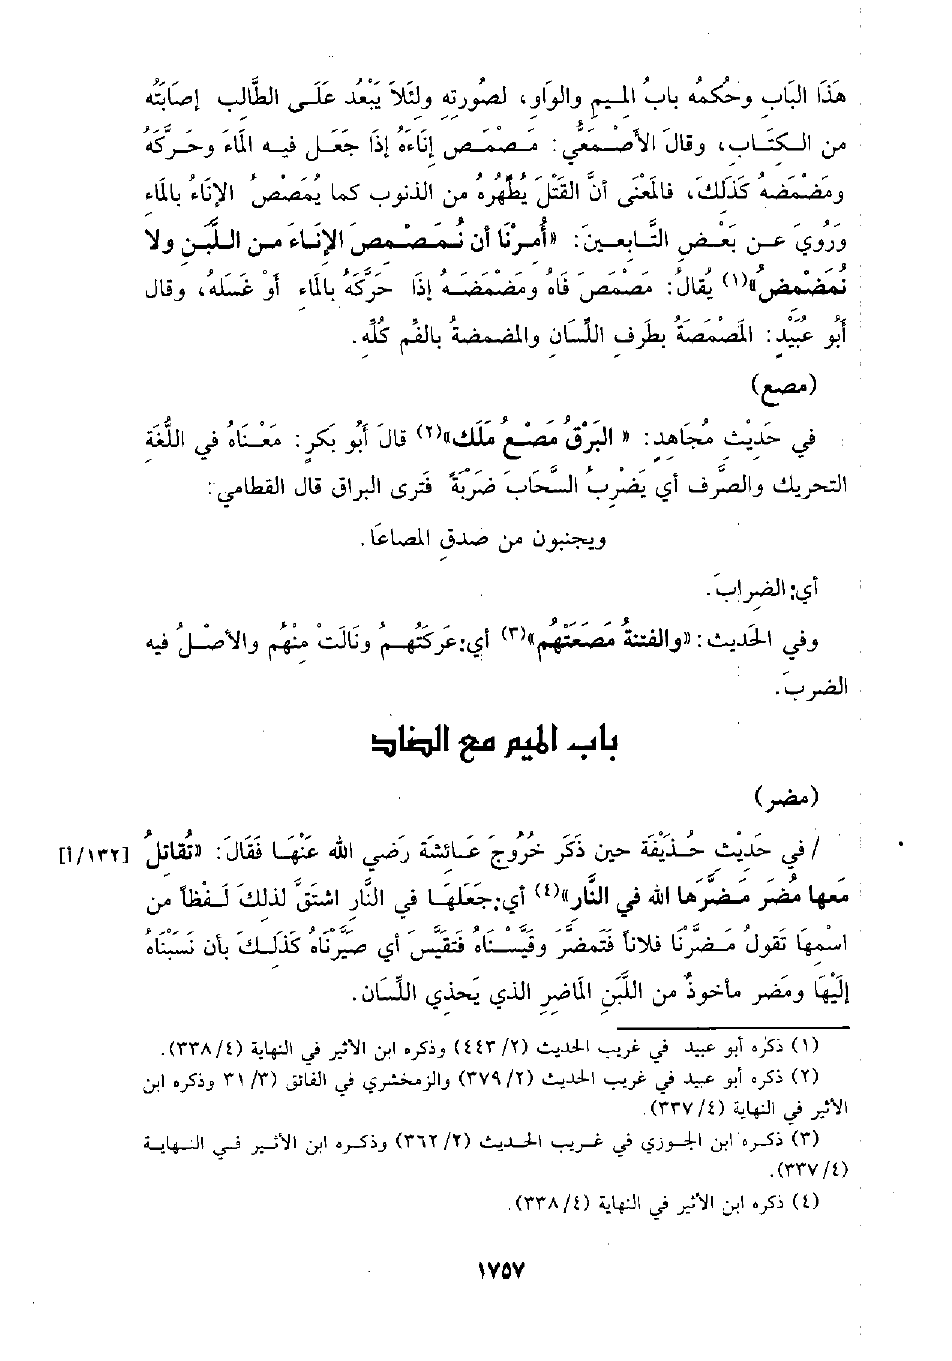 هَذَا البَاب وحُكمُه بابُ الميم والوَاو، لصُورته ولئَلاَ يَبْعُد عَلَى الطَّالب إصَابَتُه
من الكتَاب، وقالَ الأصْمَعيُّ: مَصْمَص إنَاءَهُ إذَا جَعَل فيه المَاءَ وحَركَّهُ
ومَضْمَضهُ كَذَلكَ، فالمَعْنَى أنَّ القَتْلَ يُطَهِّرهُ من الذنوب كما يُمَصْمصُ الإنَاءُ بالمَاء
وَرُويَ عن بَعْض التَّابعين: «أُمرْنَا أن نُمَصْمصَ الإنَاءَ من اللَّبَن ولا
نُمَضْمضُ»(١) يُقالُ: مَصْمَصَ فَاهُ ومَضْمَضَهُ إذَا حَرَّكَهُ بالمَاء أو غَسَلهُ، وقال
أَبُو عُبَيْدٍ: المَصْمَصَةُ بطَرفِ اللِّسَان والمَضمضةُ بالفَم كُلِّه.
(مصع)
في حَديْث مُجَاهدٍ: « البَرْقُ مَصْعُ مَلَك»(٢) قالَ أَبُو بَكرٍ: مَعْنَاهُ في اللُّغَة
التحريك والصَّرف أي يَضْربُ السَّحَابَ ضَرْبَةً فتَرى البراق قال القطامي:
ويجنبون من صدقِ المصاعَا.
أي: الضرابَ.
وفي الحَديث: «والفتنةُ مَصَعَتْهُم»(٣) أي: عَرَكَتْهُم ونَالَتْ منْهُم والأصْلُ فيه
الضربَ.
باب الميم مع الضاد
(مضر)
/ في حَديْث حُذيْفَة حين ذَكَر خُرُوجَ عَائشَة رَضي الله عَنْهَا فَقَالَ: «تُقاتلُ [١٣٢/أ]
مَعها مُضَر مَضَّرَها الله في النَّار»(٤) أي: جَعَلهَا في النَّار اشتَقَّ لذلكَ لَفْظاً من
اسْمهَا تَقولُ مَضرَّنَا فلاناً فَتَمضَّر وقَيسْنَاه فتَقيَّس أي صَيَّرنَاهُ كَذلَكَ بأن نَسَبْنَاهُ
إلَيْهَا ومُضَر مأخوذٌ من اللَّبَن المَاضرِ الذي يَحذي اللِّسَان.
(١) ذكره أبو عبيد في غريب الحديث (٤٤٣/٢) وذكره ابن الأثير في النهاية (٣٣٨/٤).
(٢) ذكره أبو عبيد في غريب الحديث (٣٧٩/٢) والزمخشري في الفائق (٣١/٣ وذكره ابن
الأثير في النهاية (٣٣٧/٤).
(٣) ذكره ابن الجوزي في غريب الحديث (٣٦٢/٢) وذكره ابن الأثير في النهاية
(٣٣٧/٤).
(٤) ذكره ابن الأثير في النهاية (٣٣٨/٤).
١٧٥٧